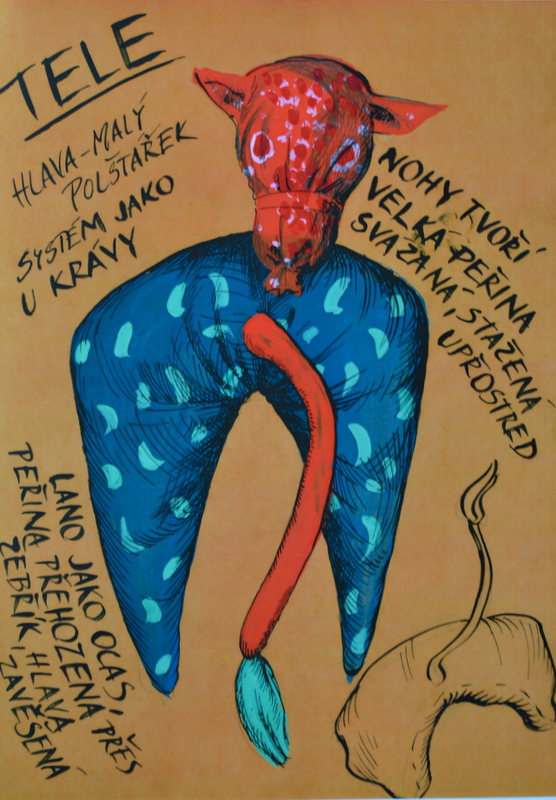 TELE
HLAVA-MALÝ
POLŠTAŘEK
SYSTÉM JAKO
U KRÁVY
NOHY TVOŘÍ
VELKÁ PEŘINA
SVÁZANÁ, STAŽENÁ
UPŘOSTRED
LANO JAKO OCAS,
PEŘINA PŘEHOZENÁ PŘES
ŽEBŘÍK, HLAVA
ZAVĚŠENÁ